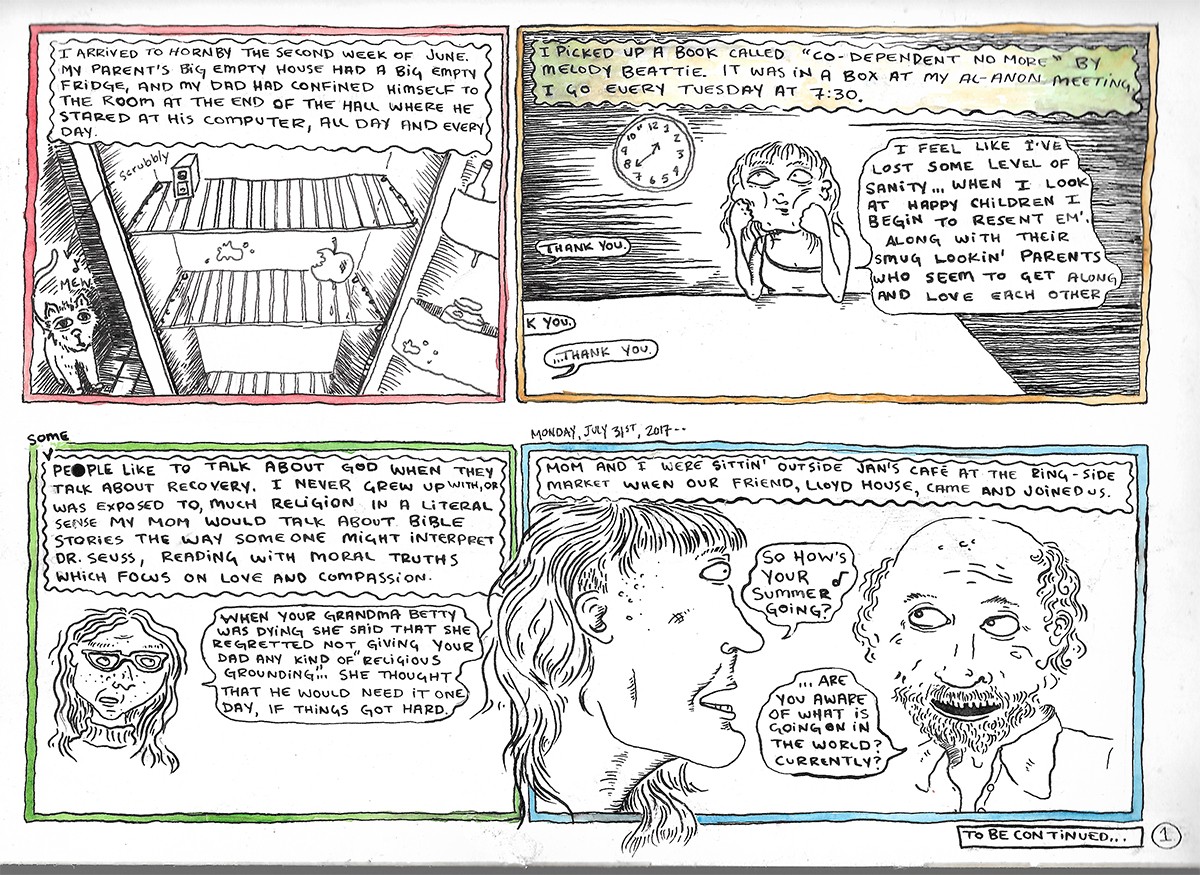 I ARRIVED TO HORNBY THE SECOND WEEK OF JUNE.
MY PARENT'S BIG EMPTY HOUSE HAD A BIG EMPTY
FRIDGE, AND MY DAD HAD CONFINED HIMSELF TO
THE ROOM AT THE END OF THE HALL WHERE HE
STARED AT HIS COMPUTER, ALL DAY AND EVERY
DAY.
scrubbly
MEW.
I PICKED UP A BOOK CALLED "CO-DEPENDENT NO MORE" BY
MELODY BEATTIE. IT WAS IN A BOX AT MY AL-ANON MEETING,
I GO EVERY TUESDAY AT 7:30.
12
1
2
3
4
5
6
7
8
9
10
11
I FEEL LIKE I'VE
LOST SOME LEVEL OF
SANITY... WHEN I LOOK
AT HAPPY CHILDREN I
BEGIN TO RESENT EM'.
ALONG WITH THEIR
SMUG LOOKIN' PARENTS
WHO SEEM TO GET ALONG
AND LOVE EACH OTHER
THANK YOU.
K YOU.
...THANK YOU.
SOME
PEOPLE LIKE TO TALK ABOUT GOD WHEN THEY
TALK ABOUT RECOVERY. I NEVER GREW UP WITH, OR
WAS EXPOSED TO, MUCH RELIGION IN A LITERAL
SENSE MY MOM WOULD TALK ABOUT BIBLE
STORIES THE WAY SOMEONE MIGHT INTERPRET
DR. SEUSS, READING WITH MORAL TRUTHS
WHICH FOCUS ON LOVE AND COMPASSION.
WHEN YOUR GRANDMA BETTY
WAS DYING SHE SAID THAT SHE
REGRETTED NOT GIVING YOUR
DAD ANY KIND OF "RELIGIOUS
GROUNDING"... SHE THOUGHT
THAT HE WOULD NEED IT ONE
DAY, IF THINGS GOT HARD.
MONDAY, JULY 31ST, 2017--
MOM AND I WERE SITTIN' OUTSIDE JAN'S CAFÉ AT THE RING-SIDE
MARKET WHEN OUR FRIEND, LLOYD HOUSE, CAME AND JOINED US.
SO HOW'S
YOUR
SUMMER
GOING?
... ARE
YOU AWARE
OF WHAT IS
GOING ON IN
THE WORLD?
CURRENTLY?
TO BE CONTINUED... 1